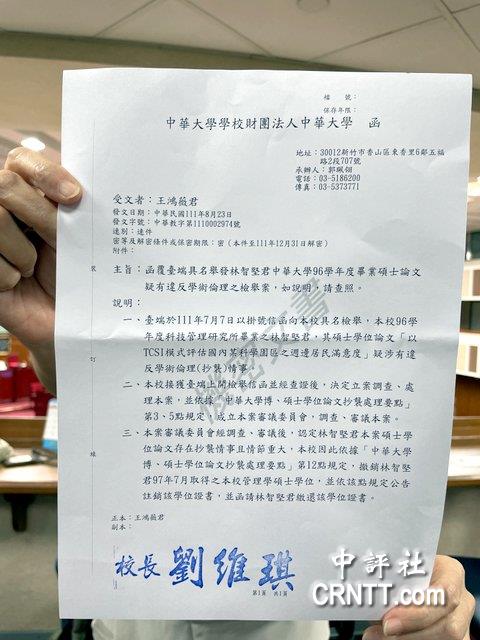 檔　　號：
保存年限：
中華大學學校財團法人中華大學　函
地址：30012新竹市香山區東香里6鄰五福
路2段707號
承辦人：郭珮翎
電話：03-5186200
傳真：03-5373771
受文者：王鴻薇君
發文日期：中華民國111年8月23日
發文字號：中華教字第1110002974號
速別：速件
密等及解密條件或保密期限：密（本件至111年12月31日解密）
附件：
主旨：函覆臺端具名舉發林智堅君中華大學96學年度畢業碩士論文
疑有違反學術倫理之檢舉案，如說明，請查照。
說明：
一、臺端於111年7月7日以掛號信函向本校具名檢舉，本校96學
年度科技管理研究所畢業之林智堅君，其碩士學位論文「以
TCSI模式評估國內某科學園區之週邊居民滿意度」疑涉有違
反學術倫理(抄襲)情事。
二、本校接獲臺端上開檢舉信函並經查證後，決定立案調查、處
理本案，並依據「中華大學博、碩士學位論文抄襲處理要點」
第3、5點規定，成立本案審議委員會，調查、審議本案。
三、本案審議委員會經調查、審議後，認定林智堅君本案碩士學
位論文存在抄襲情事且情節重大，本校因此依據「中華大學
博、碩士學位論文抄襲處理要點」第12點規定，撤銷林智堅
君97年7月取得之本校管理學碩士學位，並依該點規定公告
註銷該學位證書，並函請林智堅君繳還該學位證書。
正本：王鴻薇君
副本：
裝
訂
線
機密文書
校長 劉維琪
第1頁　共1頁
中評社
CRNTT.com